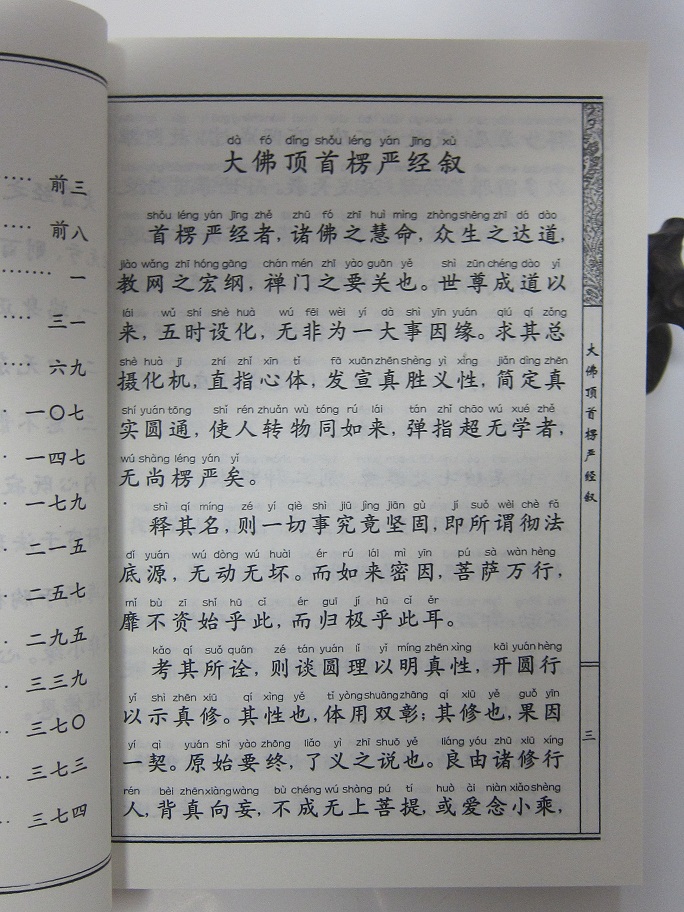 前三
前八
一
三一
六九
一〇七
一四七
一七九
二一五
二五七
二九五
三三九
三七〇
三七三
三七四
dà fó dǐng shǒu léng yán jīng xù
大佛顶首楞严经叙
shǒu léng yán jīng zhě zhū fó zhī huì mìng zhòng shēng zhī dá dào
首楞严经者，诸佛之慧命，众生之达道，
jiào wǎng zhī hóng gāng chán mén zhī yào guān yě shì zūn chéng dào yǐ
教网之宏纲，禅门之要关也。世尊成道以
lái wǔ shí shè huà wú fēi wèi yí dà shì yīn yuán qiú qí zǒng
来，五时设化，无非为一大事因缘。求其总
shè huà jī zhí zhǐ xīn tǐ fā xuān zhēn shèng yì xìng jiǎn dìng zhēn
摄化机，直指心体，发宣真胜义性，简定真
shí yuán tōng shǐ rén zhuǎn wù tóng rú lái tán zhǐ chāo wú xué zhě
实圆通，使人转物同如来，弹指超无学者，
wú shàng léng yán yǐ
无尚楞严矣。
shì qí míng zé yí qiè shì jiū jìng jiān gù jí suǒ wèi chè fǎ
释其名，则一切事究竟坚固，即所谓彻法
dǐ yuán wú dòng wú huài ér rú lái mì yīn pú sà wàn hèng
底源，无动无坏。而如来密因，菩萨万行，
mǐ bù zī shǐ hū cǐ ér guī jí hū cǐ ěr
靡不资始乎此，而归极乎此耳。
kǎo qí suǒ quán zé tán yuán lǐ yǐ míng zhēn xìng kāi yuán hèng
考其所诠，则谈圆理以明真性，开圆行
yǐ shì zhēn xiū qí xìng yě tǐ yòng shuāng zhāng qí xiū yě guǒ yīn
以示真修。其性也，体用双彰；其修也，果因
yí qì yuán shǐ yào zhōng liǎo yì zhī shuō yě liáng yóu zhū xiū xíng
一契。原始要终，了义之说也。良由诸修行
rén bèi zhēn xiàng wàng bù chéng wú shàng pú tí huò ài niàn xiǎo shèng
人，背真向妄，不成无上菩提，或爱念小乘，
大佛顶首楞严经叙
三